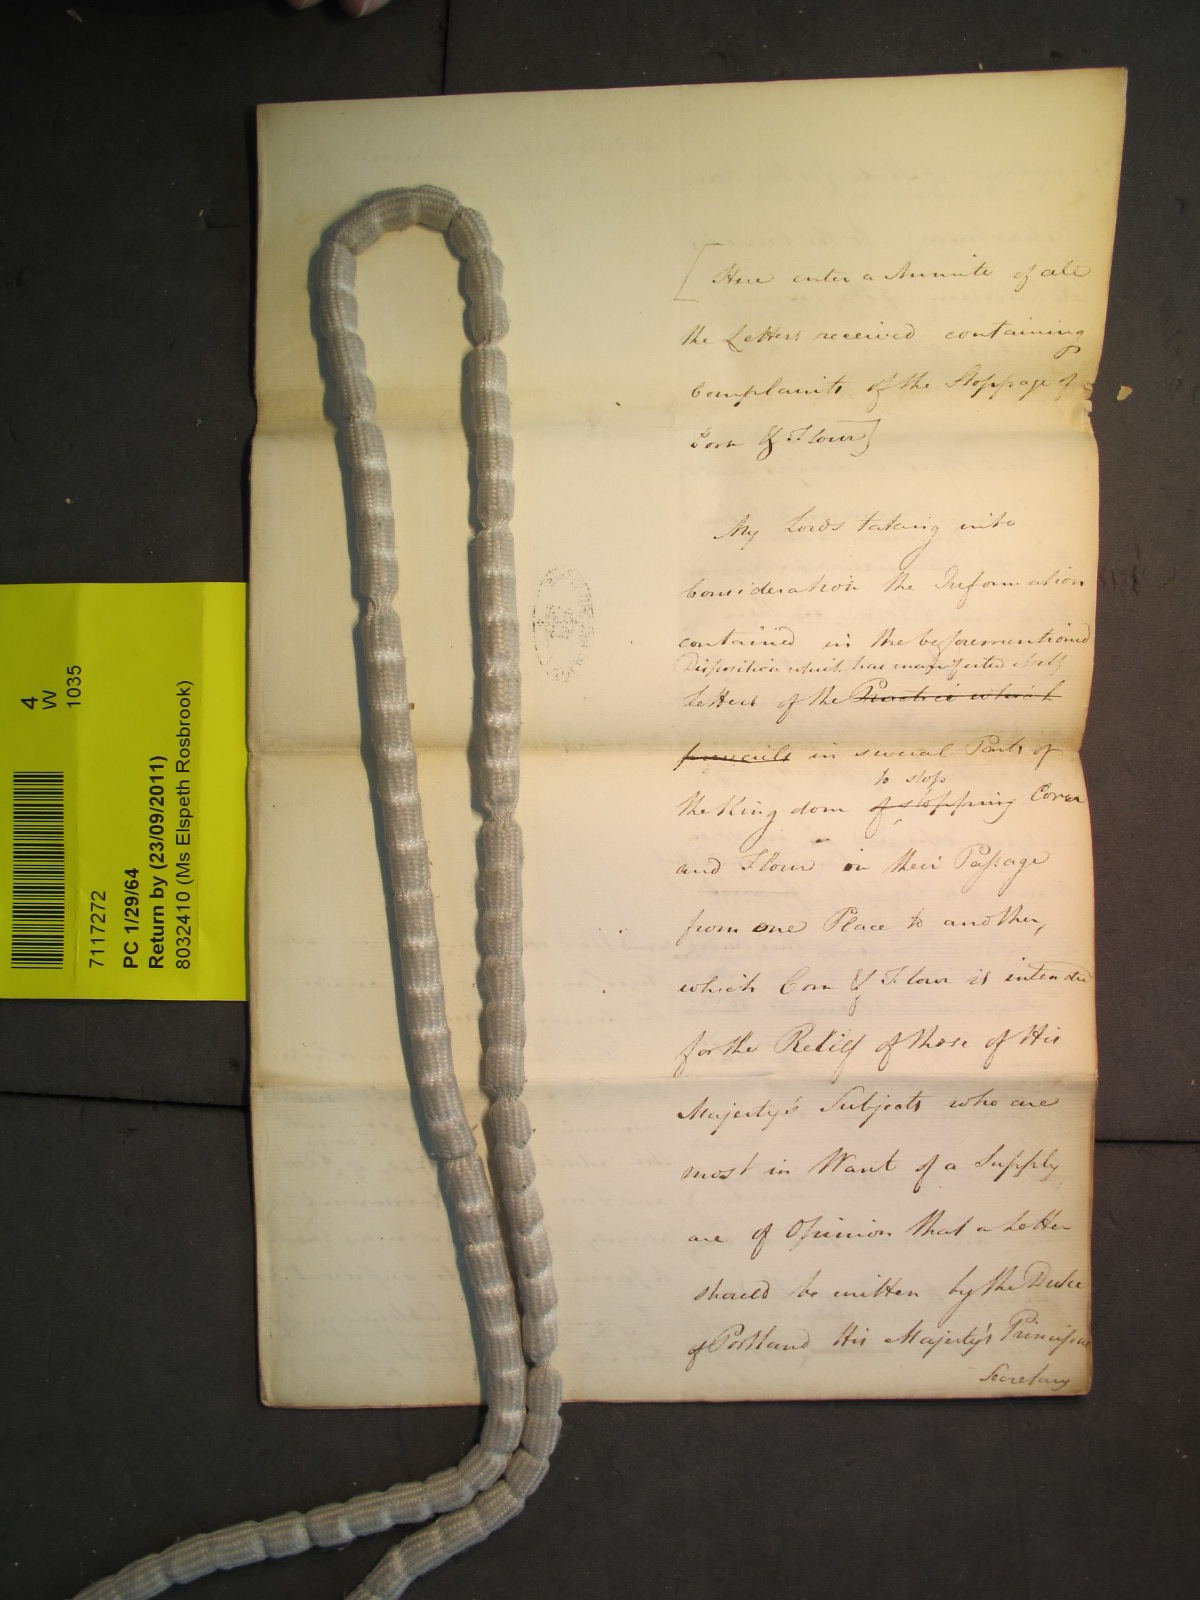 [Here enter a Minute of all
the Letters received containing
Complaints of the Stoppage of
Corn & Flour]
My Lords taking into
Consideration the Information
contained in the beforementioned
Disposition which has manifested itself
Letters of the Practice which
prevails in several Parts of
to stop
the Kingdom of stopping Corn
and Flour in their Passage
from one Place to another,
which Corn & Flour is intended
for the Relief of those of His
Majesty's Subjects who are
most in Want of a Supply
are of Opinion that a Letter
should be written by the Duke
of Portland His Majesty's Principal
Secretary
4
W
1035
7117272
PC 1/29/64
Return by (23/09/2011)
8032410 (Ms Elspeth Rosbrook)